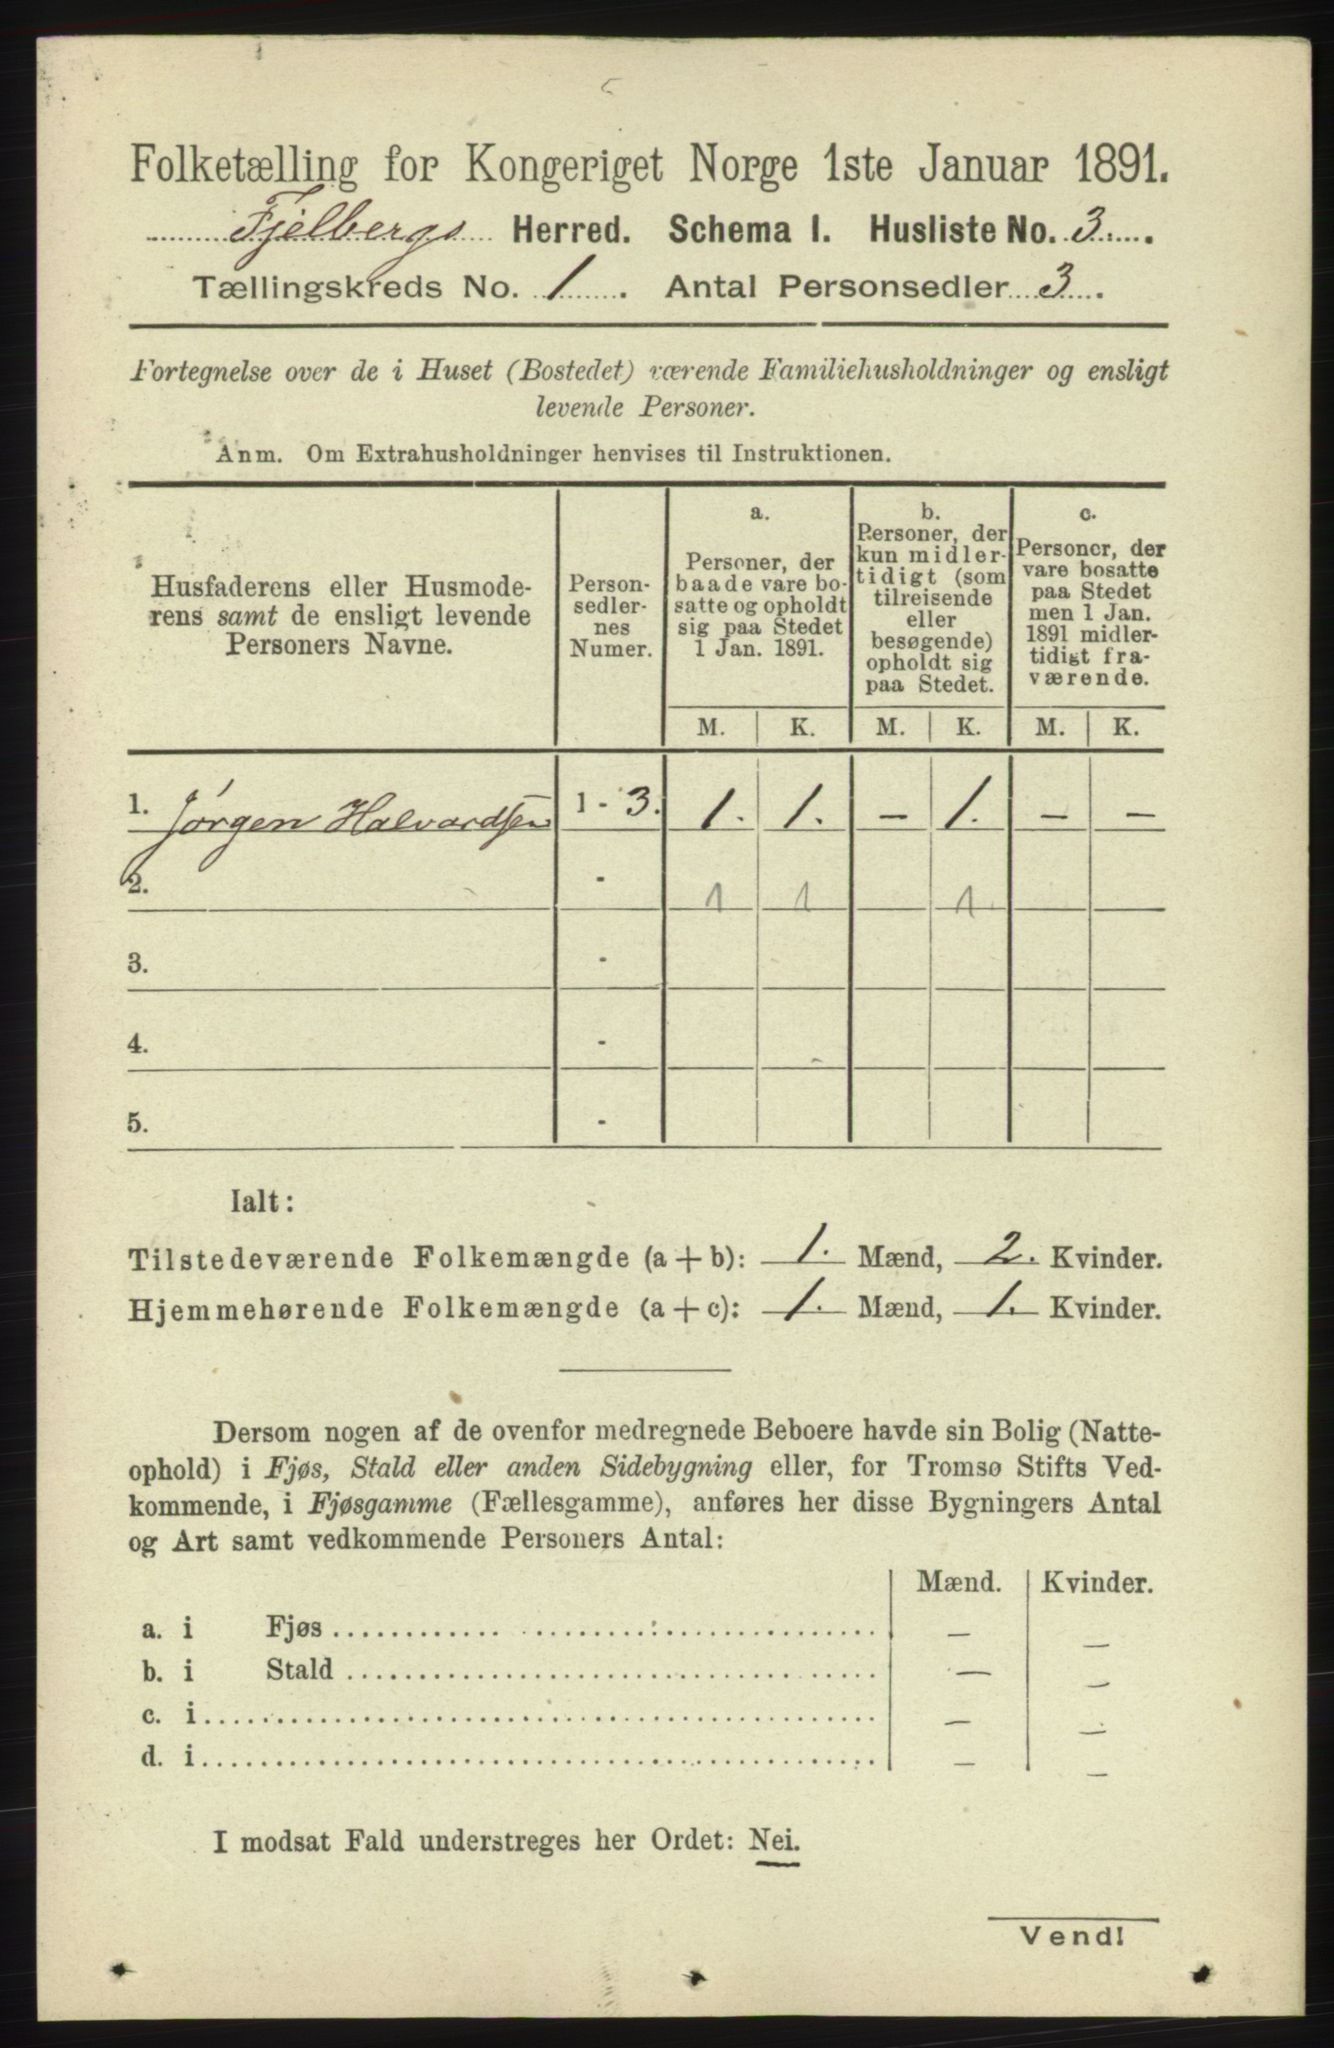 Folketælling for Kongeriget Norge 1ste Januar 1891.
Fjelbergs Herred. Schema I. Husliste No. 3.
Tællingskreds No. 1. Antal Personsedler 3.
Fortegnelse over de i Huset (Bostedet) værende Familiehusholdninger og ensligt
levende Personer.
Anm. Om Extrahusholdninger henvises til Instruktionen.
Husfaderens eller Husmode-
rens samt de ensligt levende
Personers Navne.
Person-
sedler-
nes
Numer.
a.
Personer, der
baade vare bo-
satte og opholdt
sig paa Stedet
1 Jan. 1891.
b.
Personer, der
kun midler-
tidigt (som
tilreisende
eller
besøgende)
opholdt sig
paa Stedet.
c.
Personer, der
vare bosatte
paa Stedet
men 1 Jan.
1891 midler-
tidigt fra-
værende.
M. K. M. K. M. K.
1. Jørgen Halvardsen 1 - 3. 1. 1. - 1. - -
2. - 1 1 1
3. -
4. -
5. -
Ialt:
Tilstedeværende Folkemængde (a + b): 1. Mænd, 2. Kvinder.
Hjemmehørende Folkemængde (a + c): 1. Mænd, 1. Kvinder.
Dersom nogen af de ovenfor medregnede Beboere havde sin Bolig (Natte-
ophold) i Fjøs, Stald eller anden Sidebygning eller, for Tromsø Stifts Ved-
kommende, i Fjøsgamme (Fællesgamme), anføres her disse Bygningers Antal
og Art samt vedkommende Personers Antal:
Mænd. Kvinder.
a. i Fjøs - -
b. i Stald - -
c. i - -
d. i - -
I modsat Fald understreges her Ordet: Nei.
Vend!